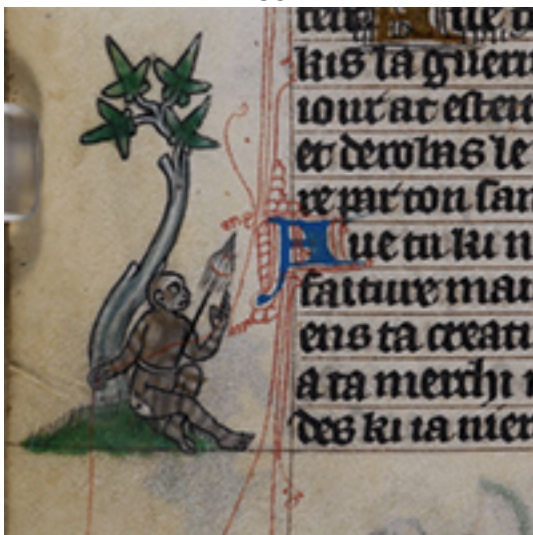 kis la guerr
iour ac esteit
et derolas le
re par ton san
Aue tu ki n
faiture mat
ens ta creati
a ta merchi
des ki ia nier